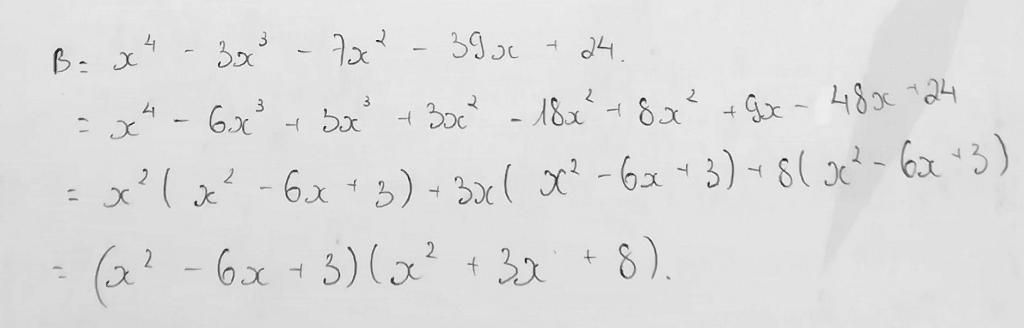 B = x⁴ - 3x³ - 7x² - 39x + 24.
= x⁴ - 6x³ + 3x³ + 3x² - 18x² + 8x² + 9x - 48x + 24
= x² ( x² - 6x + 3 ) + 3x ( x² - 6x + 3 ) + 8 ( x² - 6x + 3 )
= (x² - 6x + 3)(x² + 3x + 8).